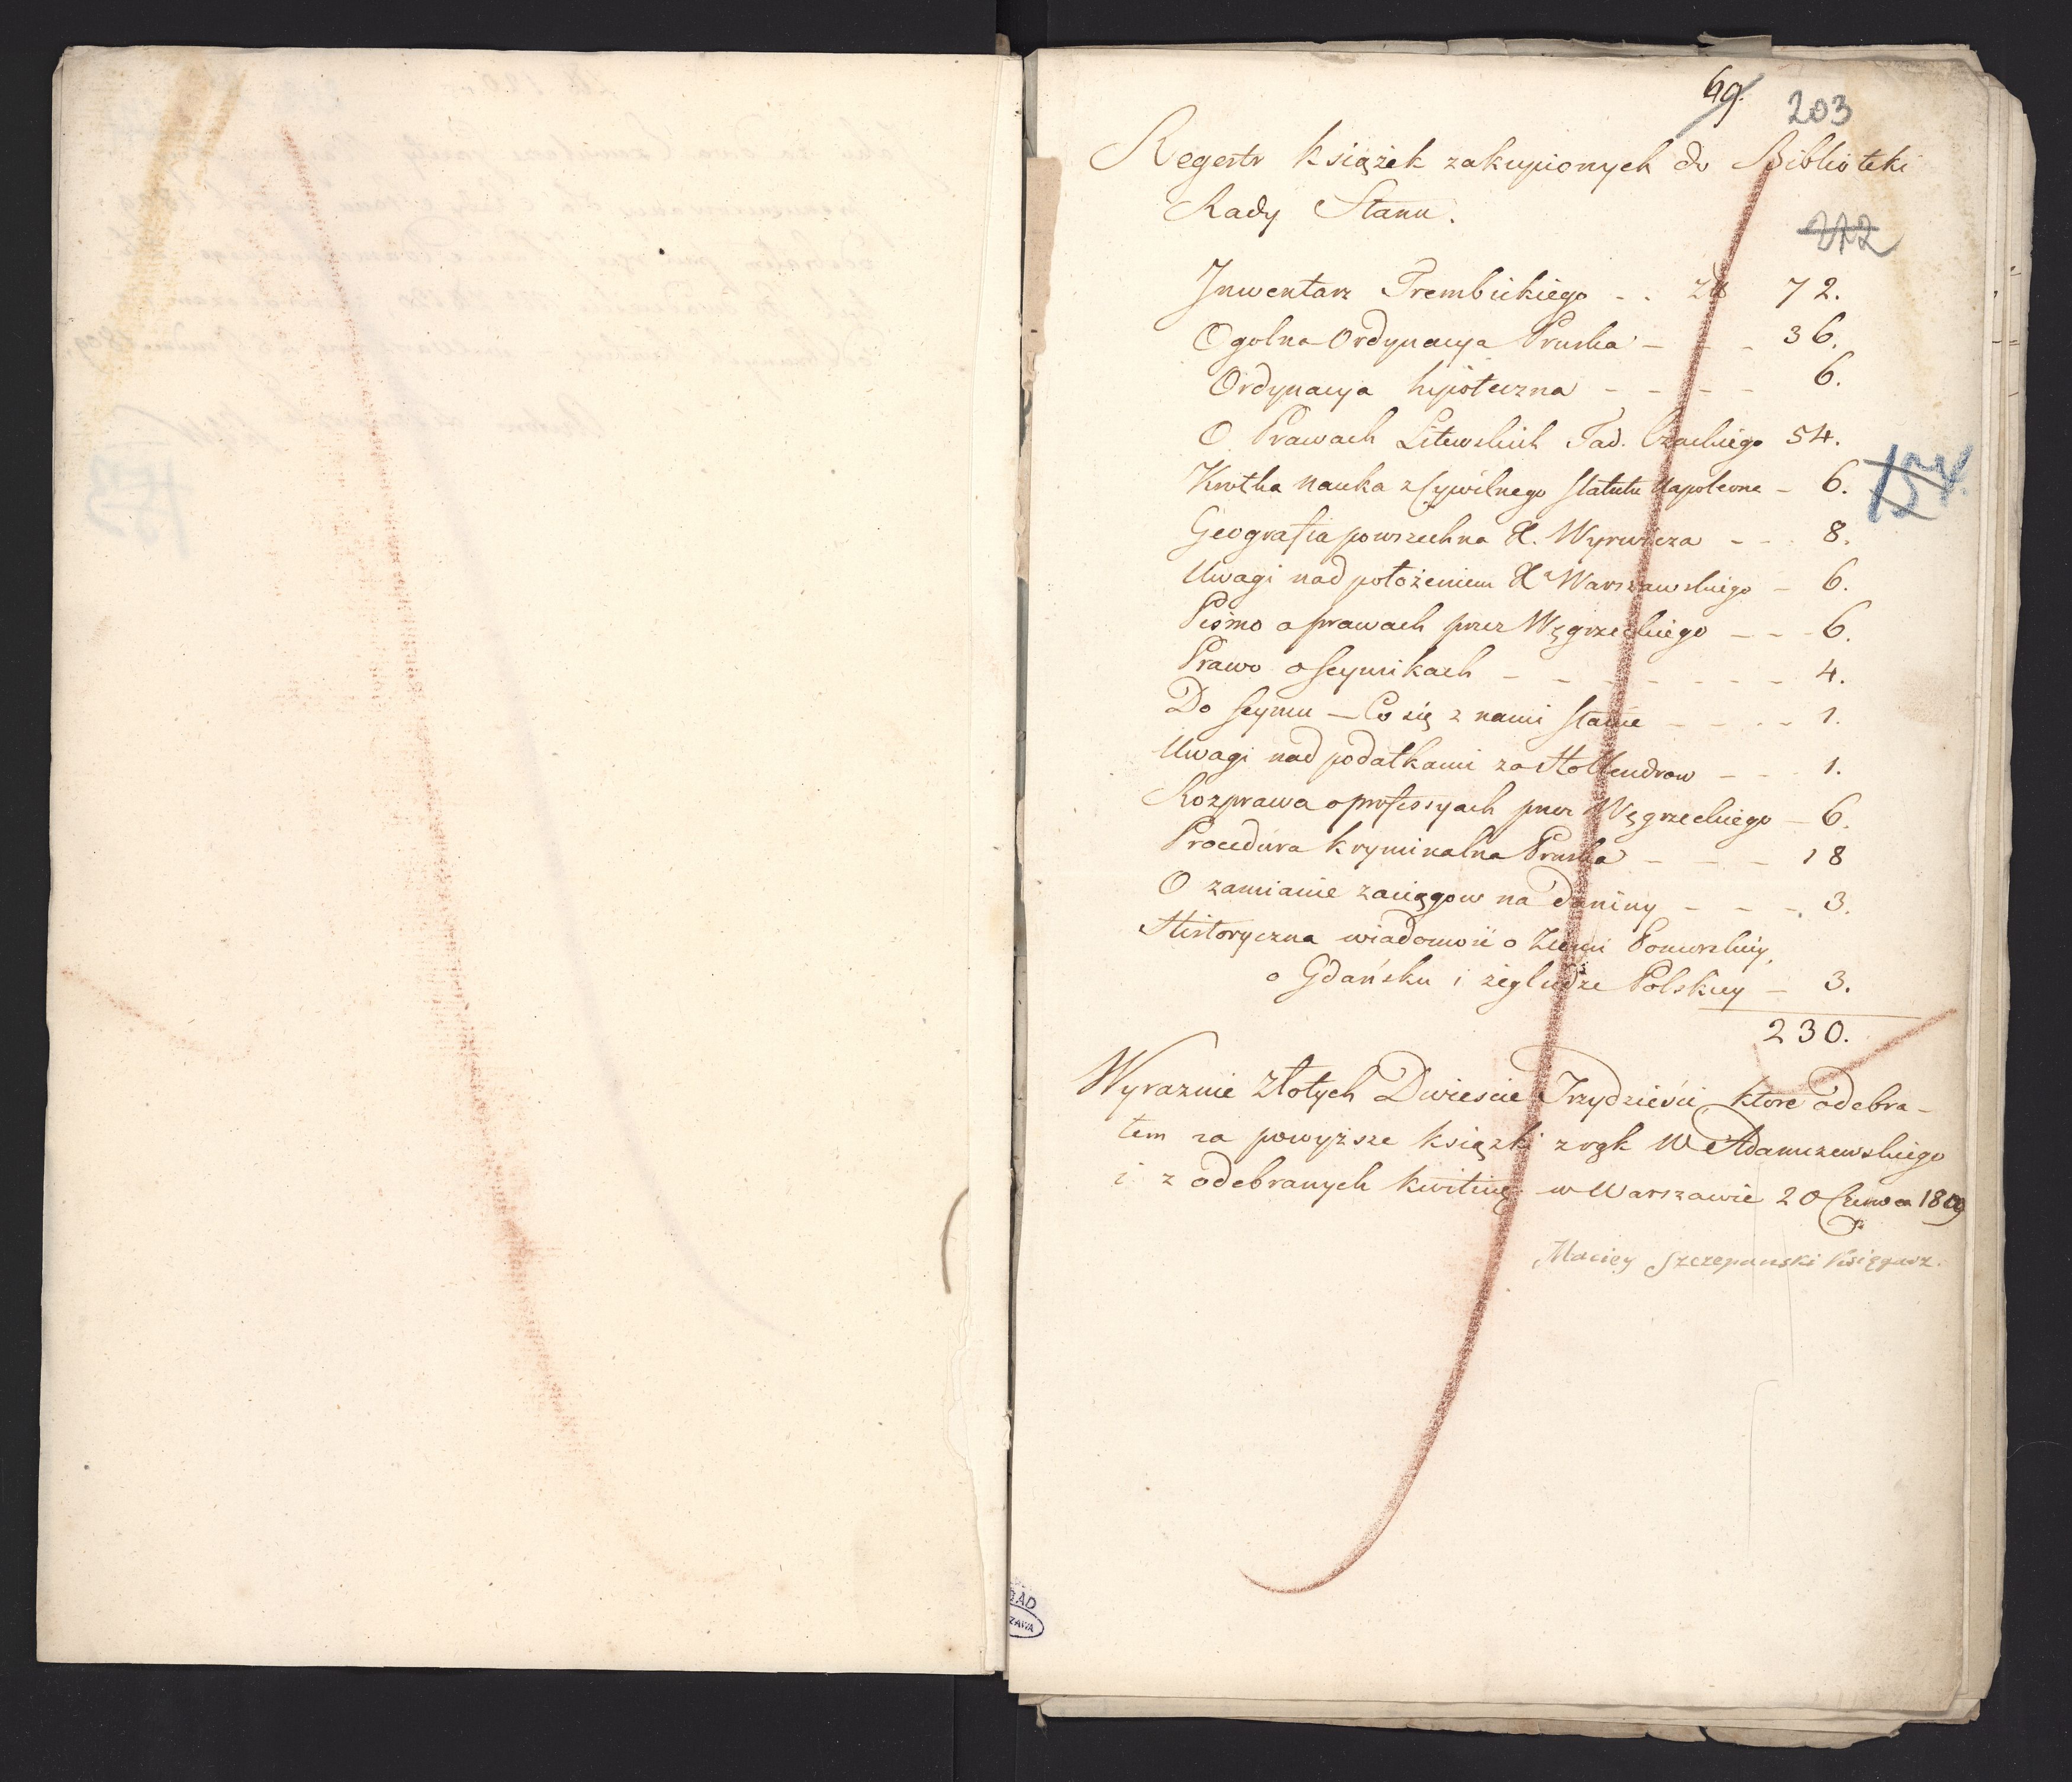 69.
203
Regestr książek zakupionych do Biblioteki
Rady Stanu.
212
Inwentarz Trembickiego - - zł 72.
Ogolna Ordynacya Pruska - - - 36.
Ordynacya hipoteczna - - - - 6.
O Prawach Litewskich Tad. Czackiego 54.
154.
Krotka nauka z Cywilnego Statutu Napoleona - 6.
Geografia powszechna X. Wyrwicza - - - 8.
Uwagi nad położeniem Xa Warszawskiego - 6.
Pismo o prawach przez Węgrzeckiego - - - 6.
Prawo o Seymikach - - - - - - - - 4.
Do Seymu - Co się z nami stanie - - - - 1.
Uwagi nad podatkami za Hollendrow - - - 1.
Rozprawa o professyach przez Węgrzeckiego - 6.
Procedura kryminalna Pruska - - - - 18
O zamianie zaciągow na daniny - - - . 3.
Historyczna wiadomość o Ziemi Pomorskiey,
o Gdańsku i żegludze Polskiey - 3.
230.
Wyraznie złotych Dwieście Trzydzieści ktore odebra-
łem za powyższe książki z rąk W Adamczewskiego
i z odebranych kwituię w Warszawie 20 Czerwca 1809
Maciey Szczepanski Księgarz.
AD
ZAWA